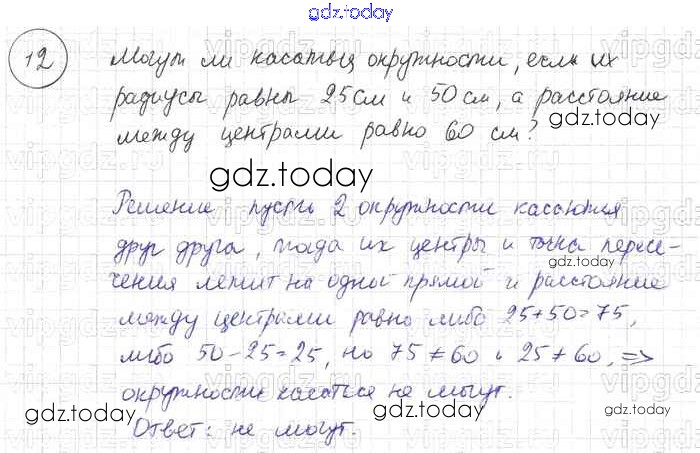 gdz.today
12 Могут ли касаться окружности, если их
радиусы равны 25 см и 50 см, а расстояние
между центрами равно 60 см?
gdz.today
gdz.today
Решение пусть 2 окружности касаются
друг друга, тогда их центры и точка пересе-
gdz.today
чения лежит на одной прямой и расстояние
между центрами равно либо 25+50=75,
либо 50-25=25, но 75≠60 и 25≠60, =>
окружности касаться не могут.
gdz.today gdz.today gdz.today
Ответ: не могут.